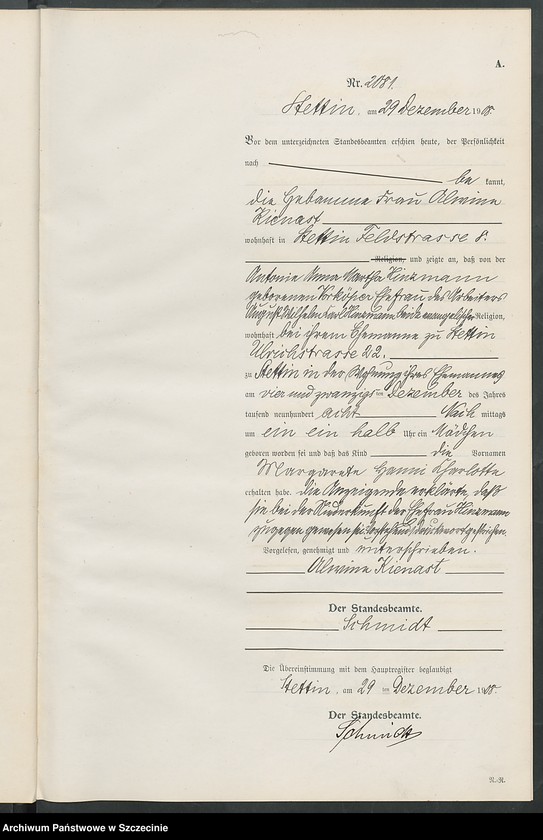 A.
Nr. 2081.
Stettin, am 29 Dezember 1908.
Vor dem unterzeichneten Standesbeamten erschien heute, der Persönlichkeit
nach
be kannt,
die Hebamme Frau Alwine
Kienast
wohnhaft in Stettin Feldstrasse 8.
Religion, und zeigte an, daß von der
Antonie Anna Martha Hinzmann
geborenen Vorköper Ehefrau des Arbeiters
August Wilhelm Karl Hinzmann beide evangelischer Religion,
wohnhaft bei ihrem Ehemanne zu Stettin
Ulrichstrasse 22.
zu Stettin in der Wohnung ihres Ehemannes
am vier und zwanzigsten Dezember des Jahres
tausend neunhundert acht Nach mittags
um ein ein halb Uhr ein Mädchen
geboren worden sei und daß das Kind die Vornamen
Margarete Hanni Charlotte
erhalten habe. Die Anzeigende erklärte, daß
sie bei der Niederkunft der Ehefrau Hinzmann
zugegen gewesen sei. Vorstehend 1 Druckwort gestrichen.
Vorgelesen, genehmigt und unterschrieben.
Alwine Kienast
Der Standesbeamte.
Schmidt
Die Übereinstimmung mit dem Hauptregister beglaubigt
Stettin, am 29 ten Dezember 1908.
Der Standesbeamte.
Schmidt
N.-R.
Archiwum Państwowe w Szczecinie